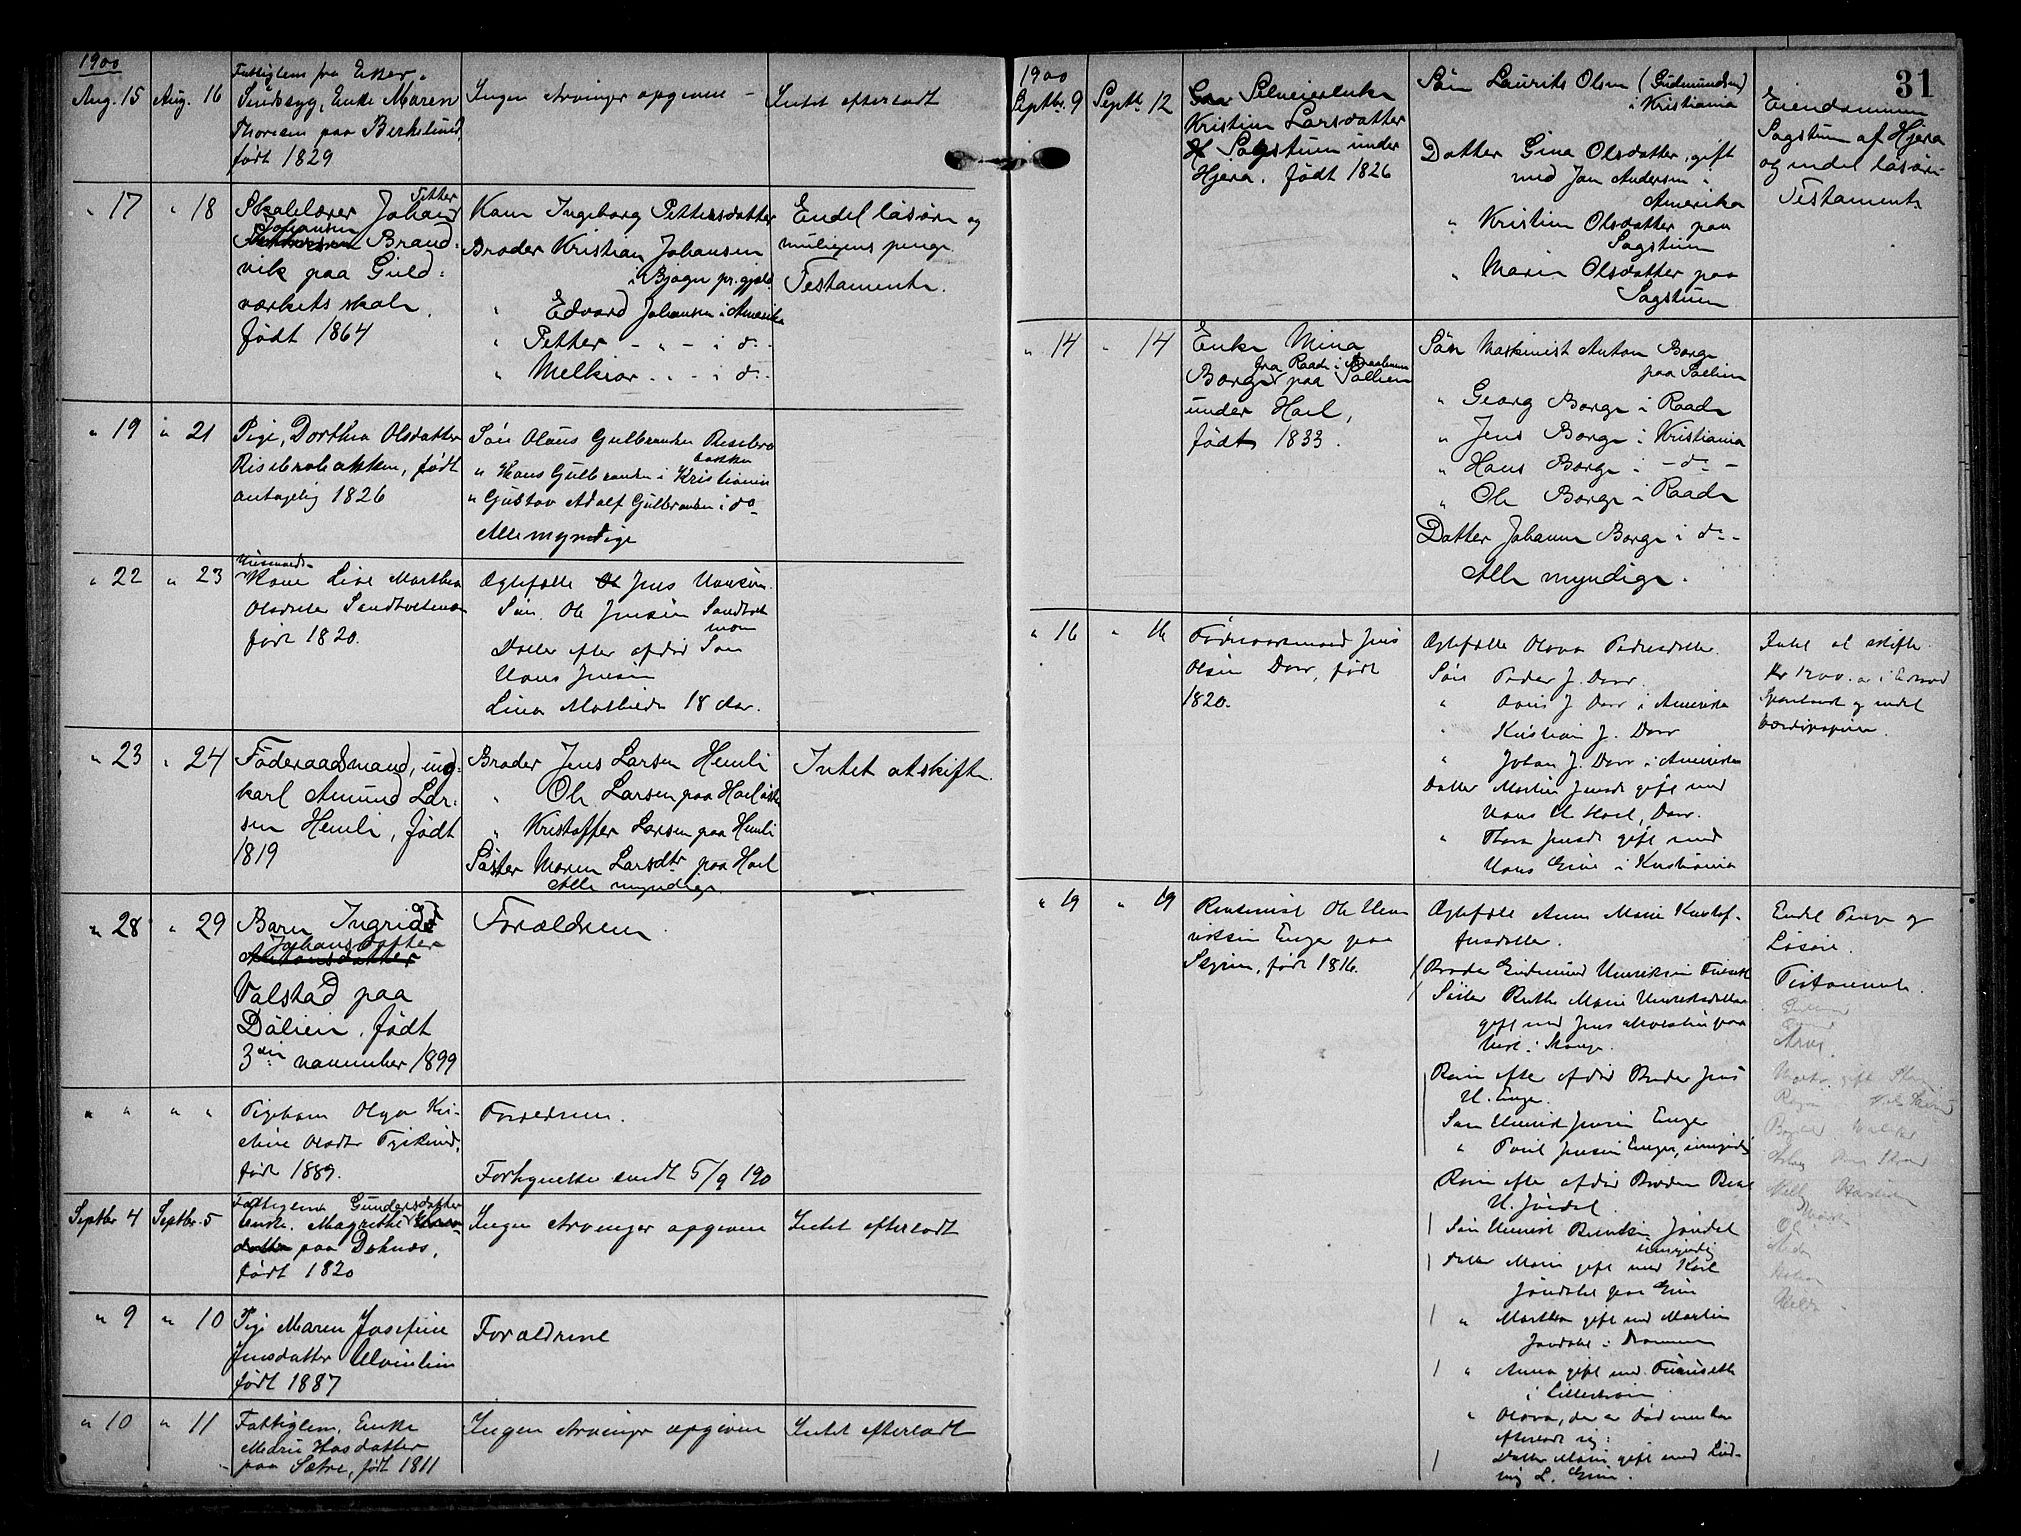 1900
Aug. 15 Aug. 16 Fattiglem fra Eker.
Sindssyg, Enke Maren
Thoresen paa Berkelund
født 1829
Ingen Arvinger opgivne -
Intet efterladt
" 17 " 18 Skolelærer Johan Petter
Johansen Brand-
vik paa Guld-
værkets skole,
født 1864
Kone Ingeborg Pettersdatter
Broder Kristian Johansen
i Bjogn pr.gjeld
" Edvard Johansen i Amerika
" Petter - " - i do.
" Melkior - - i do.
Endel løsøre og
muligens penge.
Testamente.
" 19 " 21 Pige, Dorthea Olsdatter
Risebrobakken, født
antagelig 1826
Søn Olaus Gulbrandsen Risebro
bakken
" Hans Gulbrandsen i Kristiania
" Gustav Adolf Gulbrandsen i do
Alle myndige
" 22 " 23 Husmands-
Kone Lise Marthea
Olsdatter Sandholtmoen
født 1820.
Ægtefælle Jens Hansen.
Søn. Ole Jensen Sandholt
moen
Datter efter afdød Søn
Hans Jensen
Lina Mathilde 18 Aar.
" 23 " 24 Føderaadsmand, ung-
karl Amund Lar-
sen Hemli, født
1819
Broder Jens Larsen Hemli
" Ole Larsen paa Hoel østre
" Kristoffer Larsen paa Hemli
Søster Maren Larsdtr paa Hoel
Alle myndige.
Intet at skifte.
" 28 " 29 Barn Ingrid
Johansdatter
Antonsdatter
Valstad paa
Dølien, født
3die november 1899
Forældrene.
" " " " Pigebarn Olga Kri-
stine Olsdtr
født 1889.
Forældrene.
Forhyuelse sendt 5/9 190
Septbr 4 Septbr. 5 Fattiglem Gundersdatter
Enke. Magnethe
datter paa Doknæs,
født 1820
Ingen Arvinger opgivne
Intet efterladt
" 9 " 10 Pige Maren Josefine
Jensdatter Ulvinlien
født 1887
Forældrene
" 10 " 11 Fattiglem, Enke
Marie Hansdatter
paa Sætre, født 1811
Ingen Arvinger opgivne
Intet efterladt
31
1900
Septbr. 9 Septb. 12 Selveierenke
Kristine Larsdatter
Sagstuen under
Hjera. født 1826
Søn Laurits Olsen (Gudmundsen)
i Kristiania
Datter Gina Olsdatter, gift
med Jon Andersen i
Amerika
" Kristine Olsdatter paa
Sagstuen
" Maren Olsdatter paa
Sagstuen
Eiendommen
Sagstuen af Hjera
og endel løsøre.
Testament.
" 14 " 14 Enke Mina
fra Raade i Smaalenene
Borge paa Sollien
under Hoel,
født 1833.
Søn Maskinist Anton Borge
paa Sollien
" Georg Borge i Raade
" Jens Borge i Kristiania
" Hans Borge i - do -
" Ole Borge i Raade
Datter Johanne Borge i do -
Alle myndige.
" 16 " 16 Føderaadsmand Jens
Olsen Dorr, født
1820.
Ægtefælle Olava Pedersdatter.
Søn Peder J. Dorr.
" J. Dorr i Amerika
" Kristian J. Dorr
" Johan J. Dorr i Amerika
Datter Martin Jensdtr gift med
Hans H Hoel, Dorr.
" Thora Jensdtr gift med
Hans Grini i Kristiania
Intet at skifte.
Kr 1200.
Sparebank og endel
værdipapirer.
" 19 " 19 Rentenist Ole Hen-
riksen Enger paa
Styrin, født 1816.
Ægtefælle Anne Marie Kristof-
fersdatter.
Broder Gudmund Henriksen
Søster Berthe Marie Henriksdatter
gift med Jens paa
i Stange.
Børn efter afdød Broder Jens
H. Enger.
Søn Henrik Jensen Enger
" Poul Jensen Enger, umyndig
Børn efter afdød Broder
H. Jøndal.
Søn Henrik Jøndal
umyndig
Datter Marie gift med Karl
Jøndahl paa Grini
" Marthea gift med Martin
Jøndahl i Drammen
" Anna gift med
i Lillestrøm
" Olava, der er død men har
efterladt sig:
Datter Marie gift med Lud-
vig L. Grini.
Endel Penge og
Løsøre.
Testamente.